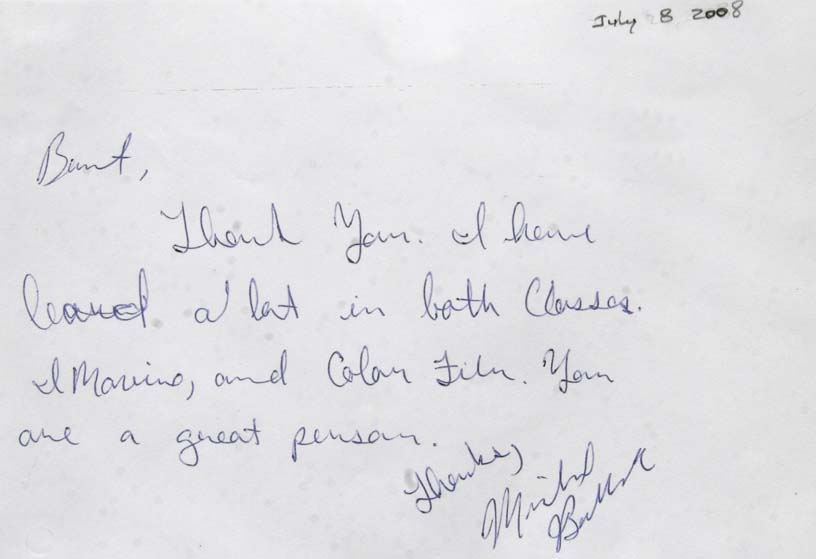 July 8 2008
Burt,
Thank You. I have
leared a lot in both Classes.
I Movino, and Color Film. You
are a great person.
Thanks,